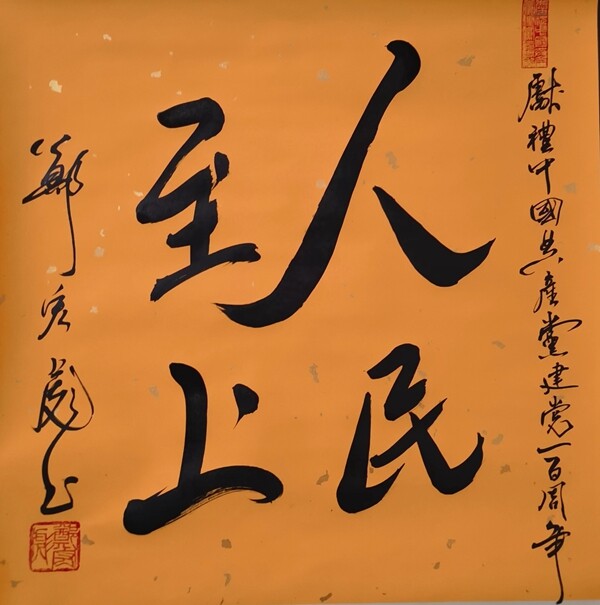 獻禮中國共產黨建黨一百周年
人民
至上
鄭宏彪书